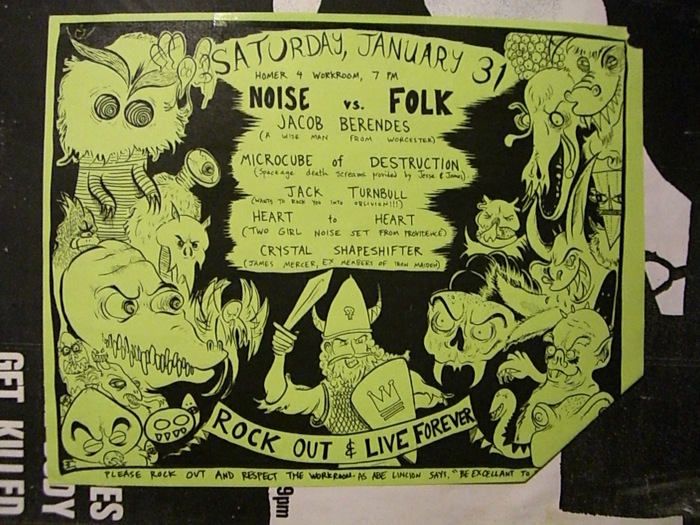 SATURDAY, JANUARY 31
HOMER 4 WORKROOM, 7 PM
NOISE vs. FOLK
JACOB BERENDES
(A WISE MAN FROM WORCESTER)
MICROCUBE of DESTRUCTION
(Spaceage death screams provided by Jesse & James)
JACK TURNBULL
(WANTS TO ROCK YOU INTO OBLIVION!!!)
HEART to HEART
(TWO GIRL NOISE SET FROM PROVIDENCE)
CRYSTAL SHAPESHIFTER
(JAMES MERCER, EX MEMBERS OF IRON MAIDEN)
ROCK OUT & LIVE FOREVER
PLEASE ROCK OUT AND RESPECT THE WORKROOM. AS ABE LINCION SAYS, "BE EXCELLANT TO
GET KILLED
ODY
ES
9pm